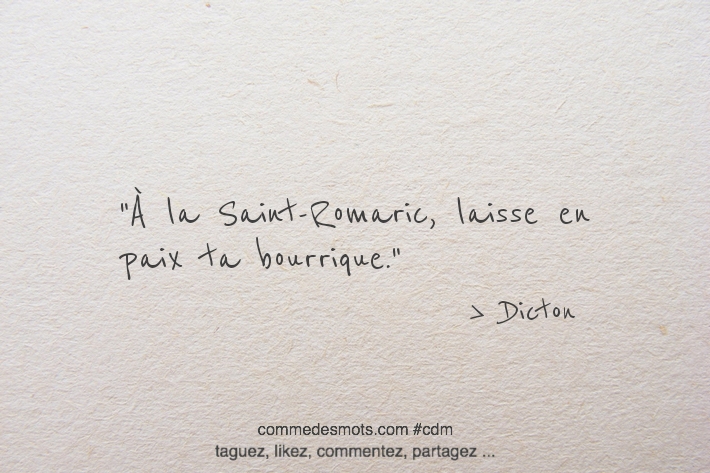 "À la Saint-Romaric, laisse en
paix ta bourrique."
> Dicton
commedesmots.com #cdm
taguez, likez, commentez, partagez ...